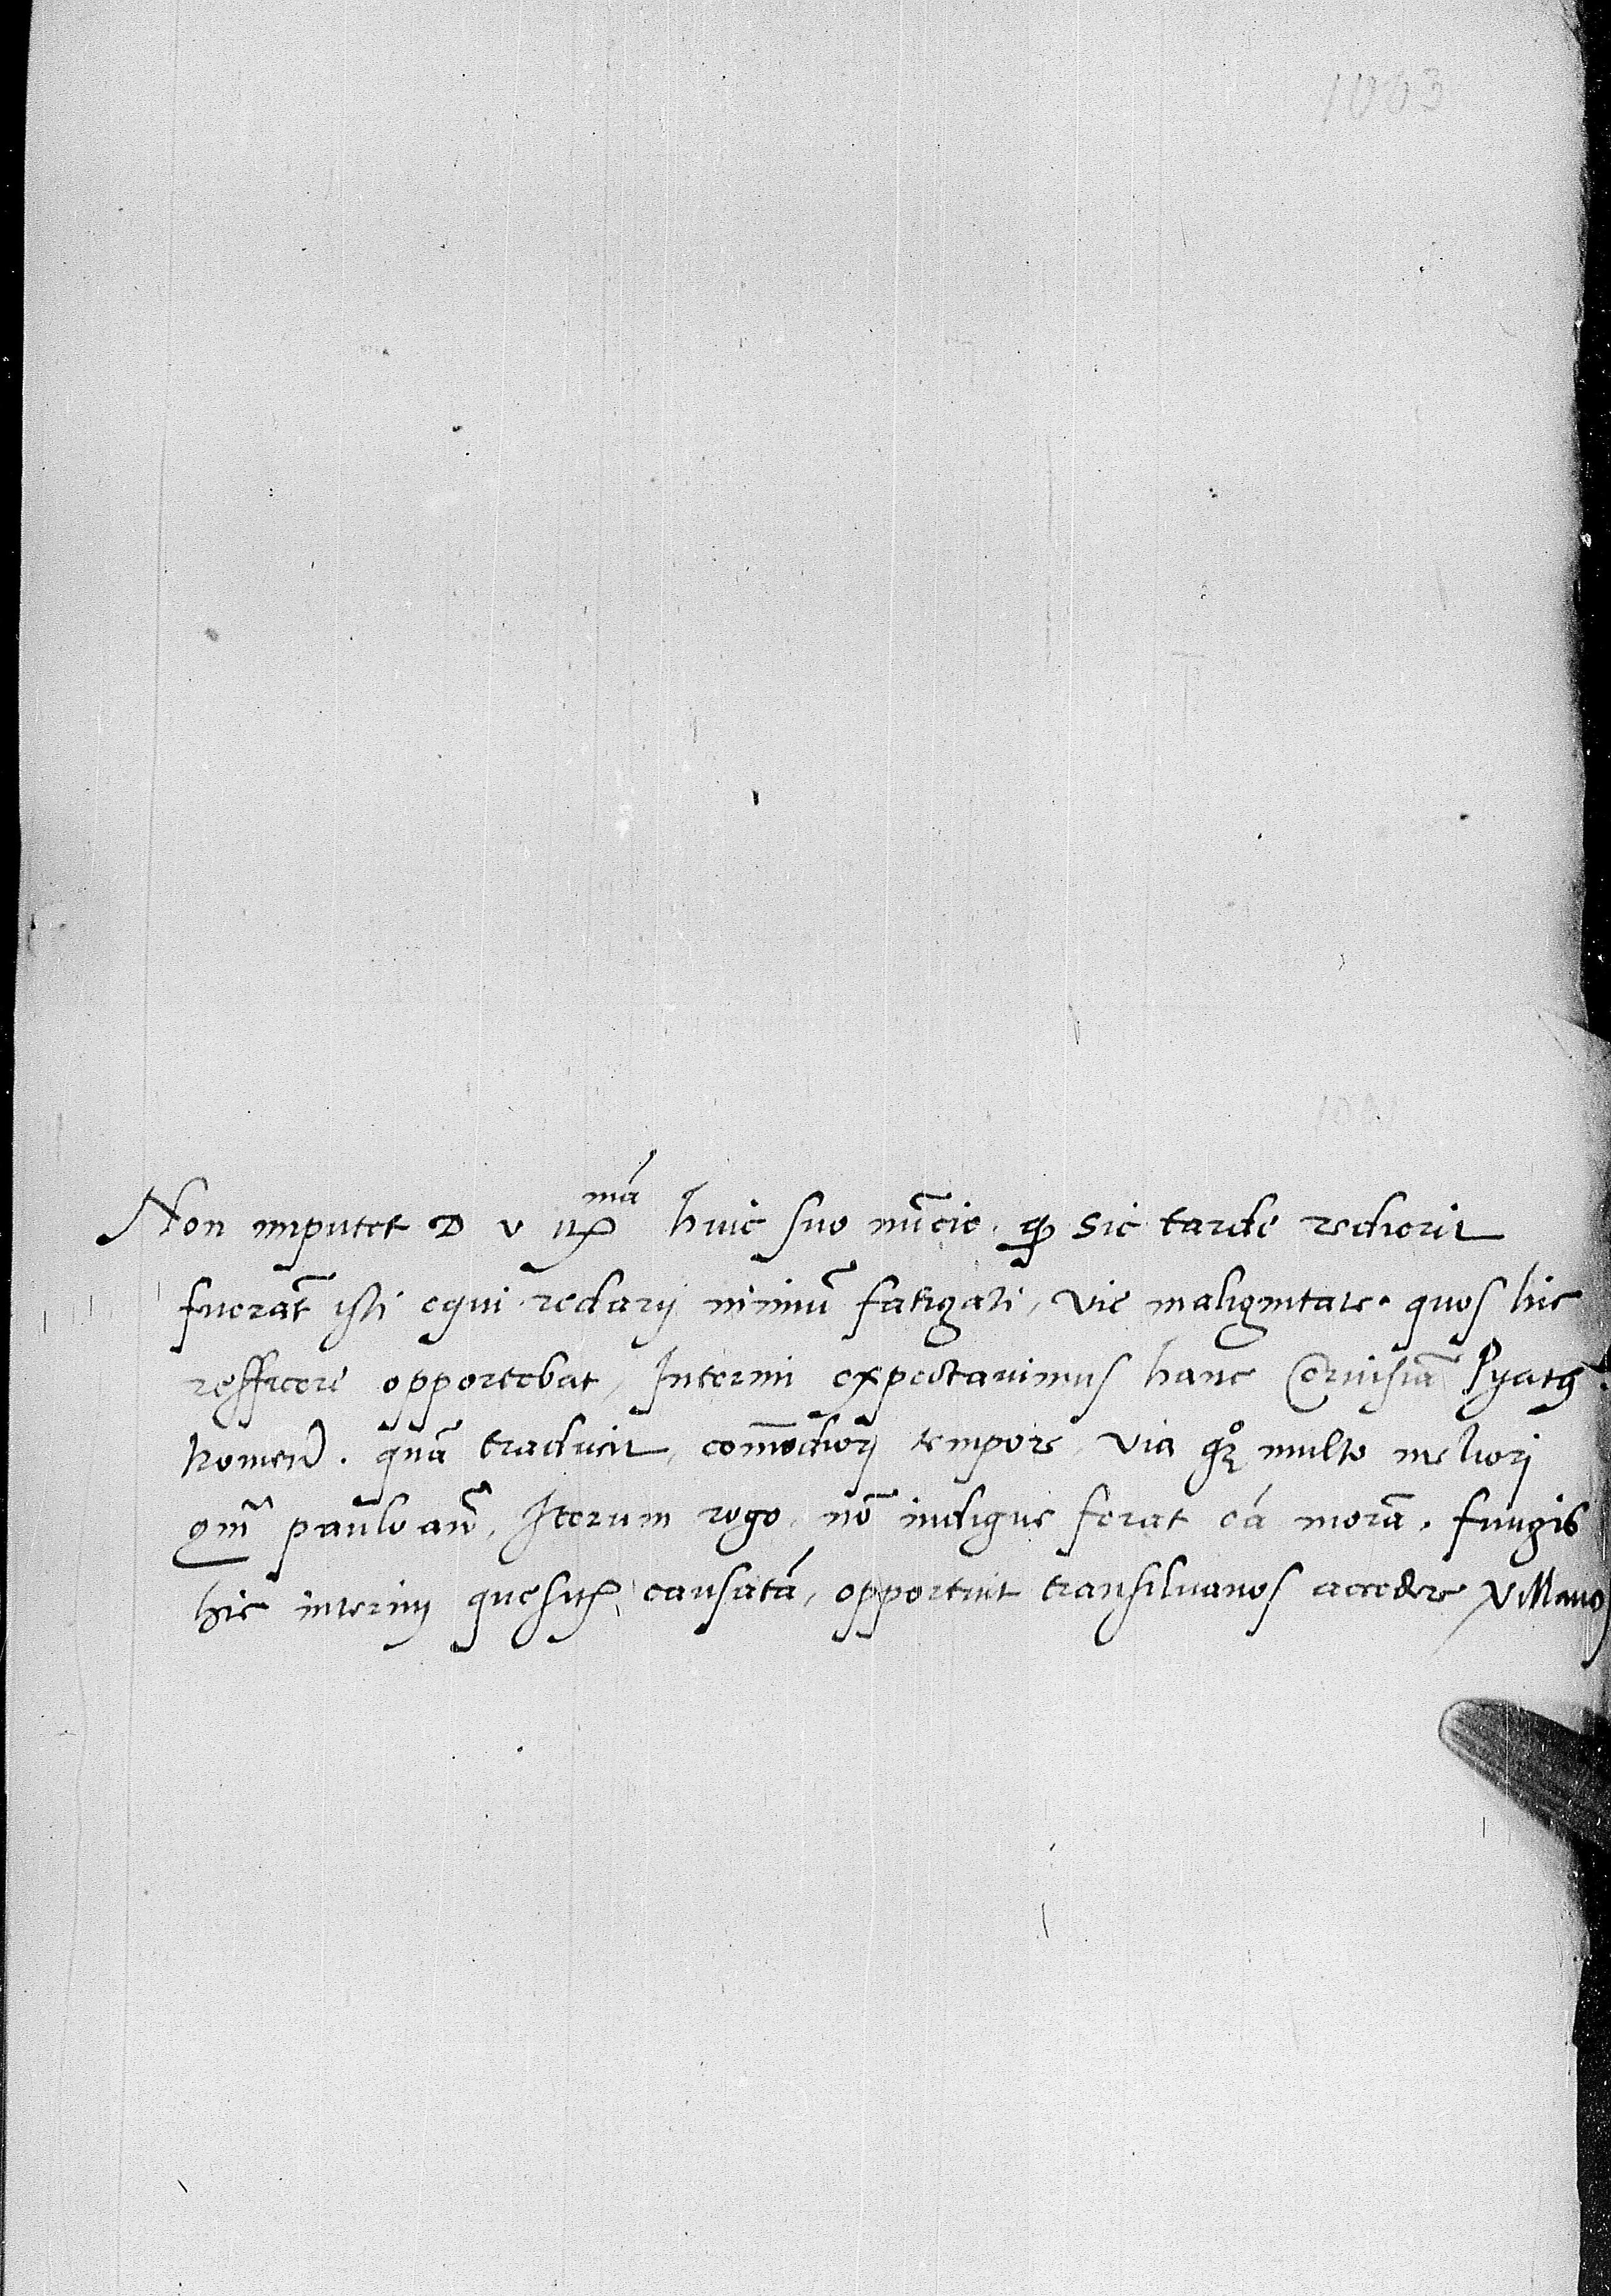 1003
Non imputet D v
ma
huic suo nūcio. qp sic tarde redierit
fuerāt isti equi redarij nimiū fatigati, vie malignitate. quos hic
refficere opportebat, Interim expectauimus hanc Ceruisiā Pyatȝ
quā traducit, com̄odiorj tempore, via qȝ multo meliorj
qm̄ paulo an̄. Iterum rogo, nō indigne ferat eā morā. fungis
hic interim causatā, opportuit transiluanos accedere